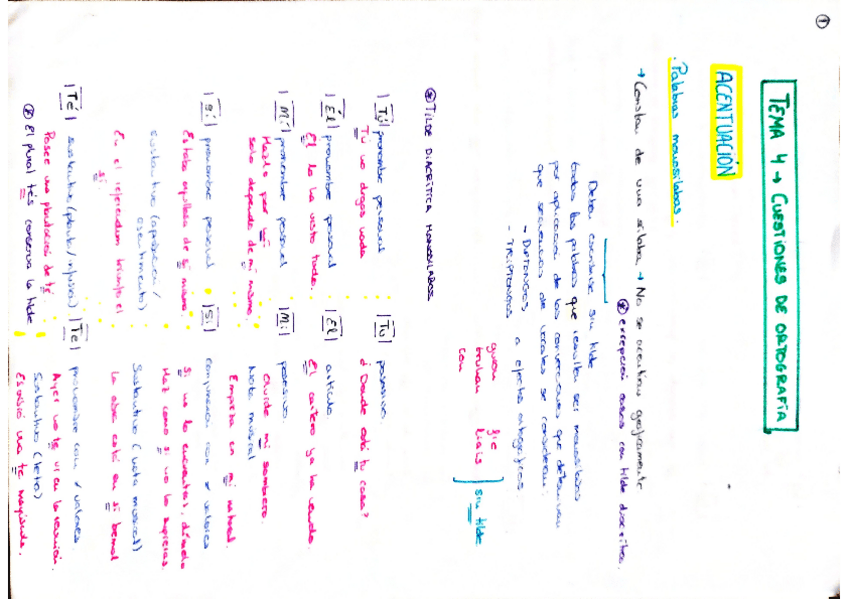 1
TEMA 4 → CUESTIONES DE ORTOGRAFÍA
ACENTUACIÓN
· Palabras monosílabas.
→ Constan de una sílaba → No se acentúan gráficamente
* excepción casos con tilde diacrítica.
Deben escribirse sin tilde
todas las palabras que resulten ser monosílabas
por aplicación de las convenciones que determinan
que secuencias de vocales se consideran:
- DIPTONGOS
- TRIPTONGOS
a efectos ortográficos
guion fie
truhan liais
con
sin tilde
* TILDE DIACRÍTICA MONOSÍLABOS
|Tú| pronombre personal
Tú no digas nada
|Tu| posesivo
¿Dónde está tu casa?
|Él| pronombre personal
Él lo ha visto todo.
|El| artículo.
El cartero ya ha venido.
|Mí| pronombre personal
Hazlo por mí
solo depende de mí mismo.
|Mi| posesivo.
Olvidé mi sombrero.
Nota musical
Empieza en mi natural.
|Sí| pronombre personal
Estaba orgullosa de sí misma
sustantivo (aprobación /
asentimiento)
En el referéndum triunfó el
sí
|Si| conjunción con ≠ valores
Si no lo encuentras, dímelo
Haz como si no lo supieras.
Sustantivo (nota musical)
La obra está en si bemol
|Té| sustantivo (planta / infusión)
Posee una plantación de té
* El plural tés conserva la tilde
|Te| pronombre con ≠ valores.
Ayer no te vi en la reunión.
Sustantivo (letra)
Escribió una te mayúscula.